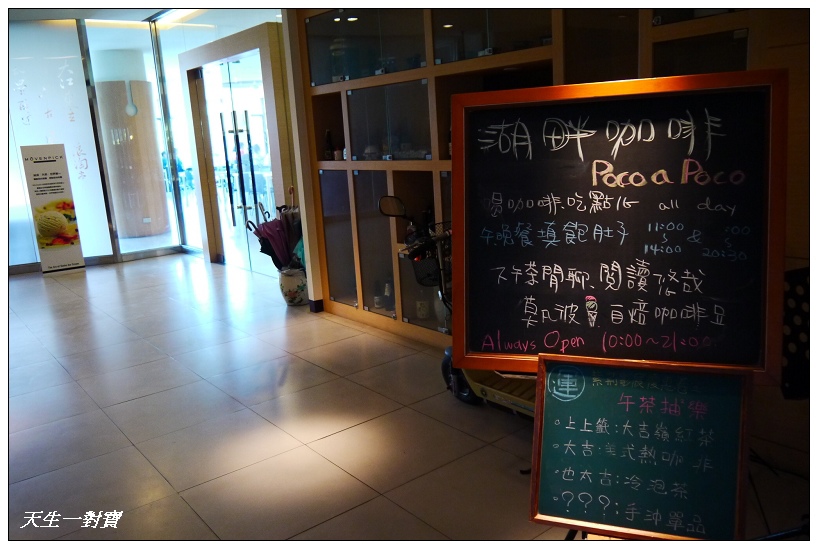 湖畔咖啡
Poco a Poco
喝咖啡、吃點心 all day
午晚餐填飽肚子 11:00 14:00 & :00 20:30
下午茶閒聊、閱讀悠哉
莫凡彼 自焙咖啡豆
Always Open 10:00~21:00
MÖVENPICK
午茶抽樂
上上籤:大吉嶺紅茶
大吉:美式熱咖啡
也太吉:冷泡茶
???:手沖單品
天生一對寶